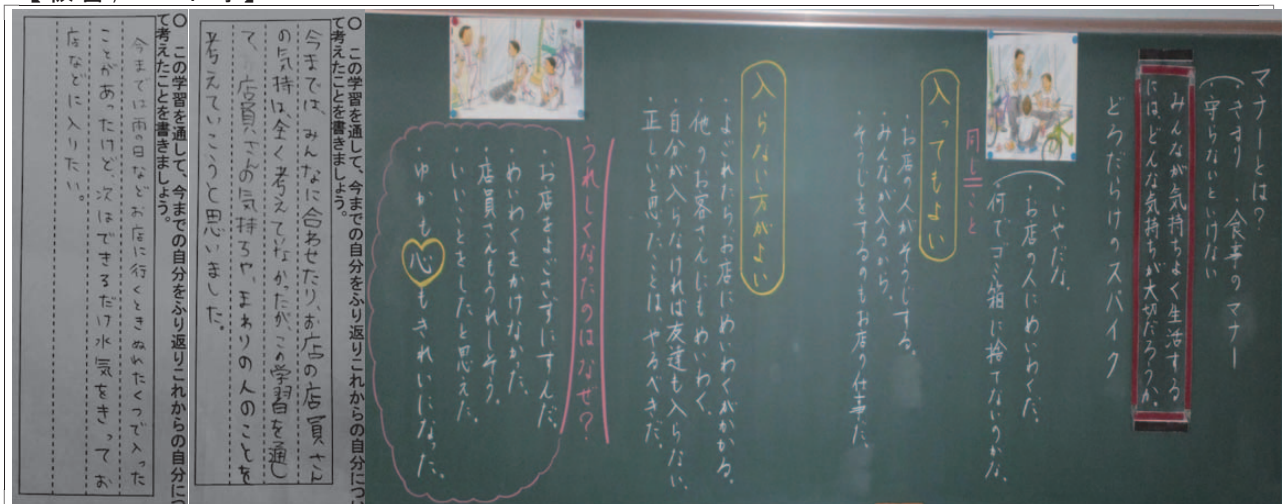 マナーとは?
・きまり ・食事のマナー
・守らないといけない
みんなが気持ちよく生活する
には、どんな気持ちが大切だろうか。
どろだらけのスパイク
・いやだな。
・お店の人にめいわくだ。
・何でゴミ箱に捨てないのかな。
同じこと
入ってもよい
・お店の人がそうじする。
・みんなが入るから。
・そうじをするのもお店の仕事だ。
入らない方がよい
・よごれたらお店にめいわくがかかる。
・他のお客さんにもめいわく。
・自分が入らなければ友達も入らない。
正しいと思ったことは、やるべきだ。
うれしくなったのはなぜ?
・お店をよごさずにすんだ。
めいわくをかけなかった。
・店員さんもうれしそう。
・いいことをしたと思えた。
ゆかも心もきれいになった。
○ この学習を通して、今までの自分をふり返りこれからの自分につい
て考えたことを書きましょう。
今までは、みんなに合わせたり、お店の店員さん
の気持は全く考えていなかったが、この学習を通し
て、店員さんの気持ちや、まわりの人のことを
考えていこうと思いました。
○ この学習を通して、今までの自分をふり返りこれからの自分につ
て考えたことを書きましょう。
今までは雨の日などお店に行くときぬれたくつで入った
ことがあったけど、次はできるだけ水気をきってお
店などに入りたい。